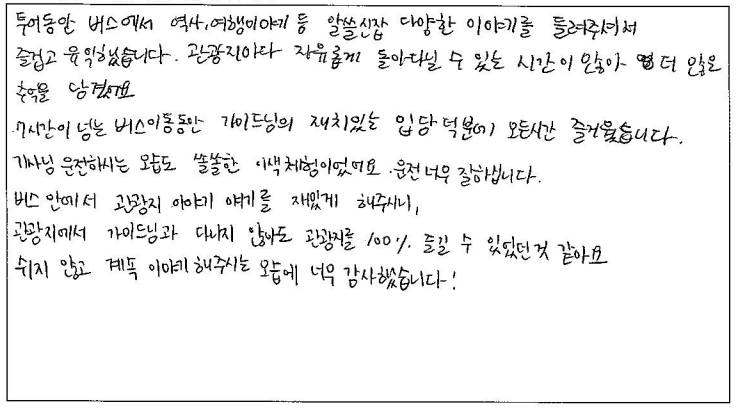 투어동안 버스에서 역사, 여행이야기 등 알쓸신잡 다양한 이야기를 들려주셔서
즐겁고 유익했습니다. 관광지마다 자유롭게 돌아다닐 수 있는 시간이 많아 더 많은
추억을 담겼어요
7시간이 넘는 버스이동동안 가이드님의 재치있는 입담 덕분에 모든시간 즐거웠습니다.
기사님 운전하시는 모습도 쏠쏠한 이색체험이었어요. 운전 너무 잘하십니다.
버스 안에서 관광지 이야기 얘기를 재밌게 해주시니,
관광지에서 가이드님과 다니지 않아도 관광지를 100% 즐길 수 있었던것 같아요
쉬지 않고 계속 이야기해주시는 모습에 너무 감사했습니다!